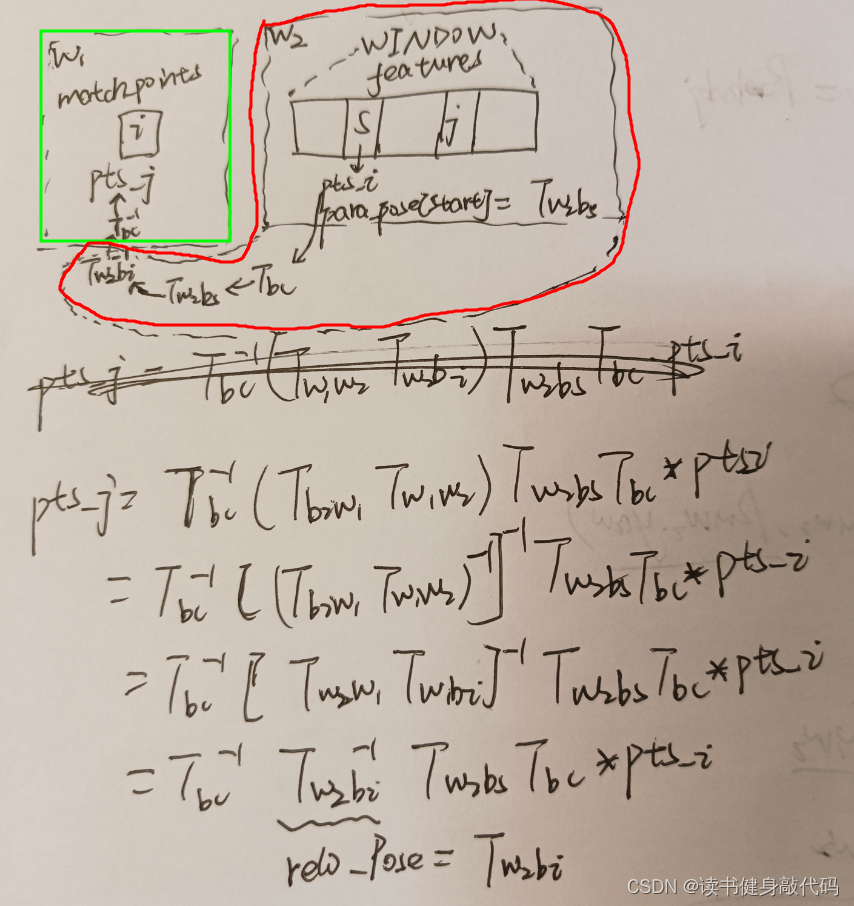 W₁
matchpoints
i
pts_j
T_bc⁻¹
T_w₂bi⁻¹
W₂
WINDOW
features
S
j
pts_i
para_pose[start] = T_w₂bs
T_w₂bs ← T_bc
pts_j = T_bc⁻¹ (T_w₁w₂ T_w₂b_i) T_w₂bs T_bc pts_i
pts_j = T_bc⁻¹ (T_b₂w₁ T_w₁w₂) T_w₂bs T_bc * pts_i
= T_bc⁻¹ [(T_b₂w₁ T_w₁w₂)⁻¹]⁻¹ T_w₂bs T_bc * pts_i
= T_bc⁻¹ [T_w₂w₁ T_w₁bi]⁻¹ T_w₂bs T_bc * pts_i
= T_bc⁻¹ T_w₂bi⁻¹ T_w₂bs T_bc * pts_i
relo_Pose = T_w₂bi
CSDN @读书健身敲代码